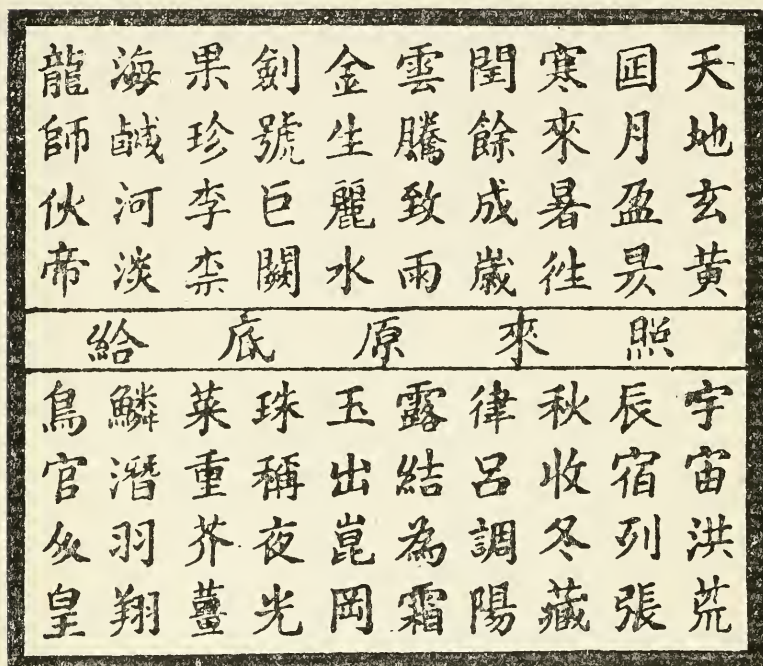 天地玄黃
月盈昃
寒來暑徃
閏餘成歲
雲騰致雨
金生麗水
劍號巨闕
果珍李柰
海鹹河淡
龍師伙帝
照來原底給
宇宙洪荒
辰宿列張
秋收冬藏
律呂調陽
露結為霜
玉出崑岡
珠稱夜光
菜重芥薑
鱗潛羽翔
鳥官皇